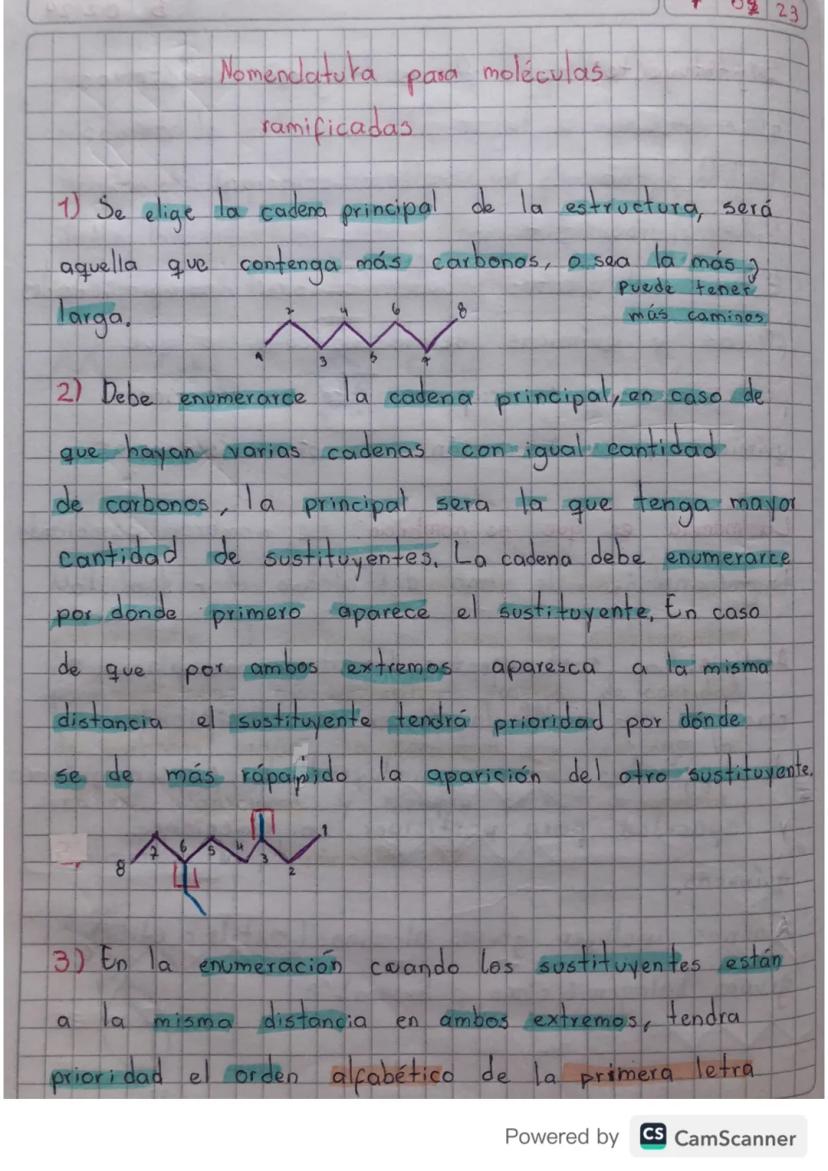 08 23
Nomenclatura para moléculas
ramificadas
1) Se elige la cadena principal de la estructura, será
aquella que contenga más carbonos, o sea la más
puede tener
larga.
más caminos
2 4 6 8
1 3 5 7
2) Debe enumerarce la cadena principal, en caso de
que hayan varias cadenas con igual cantidad
de carbonos, la principal sera la que tenga mayor
cantidad de sustituyentes. La cadena debe enumerarce
por donde primero aparece el sustituyente. En caso
de que por ambos extremos aparesca a la misma
distancia el sustituyente tendrá prioridad por dónde
se de más rápapido la aparición del otro sustituyente.
8 7 6 5 4 3 2 1
3) En la enumeración cuando los sustituyentes están
a la misma distancia en ambos extremos, tendra
prioridad el orden alfabético de la primera letra
Powered by CS CamScanner